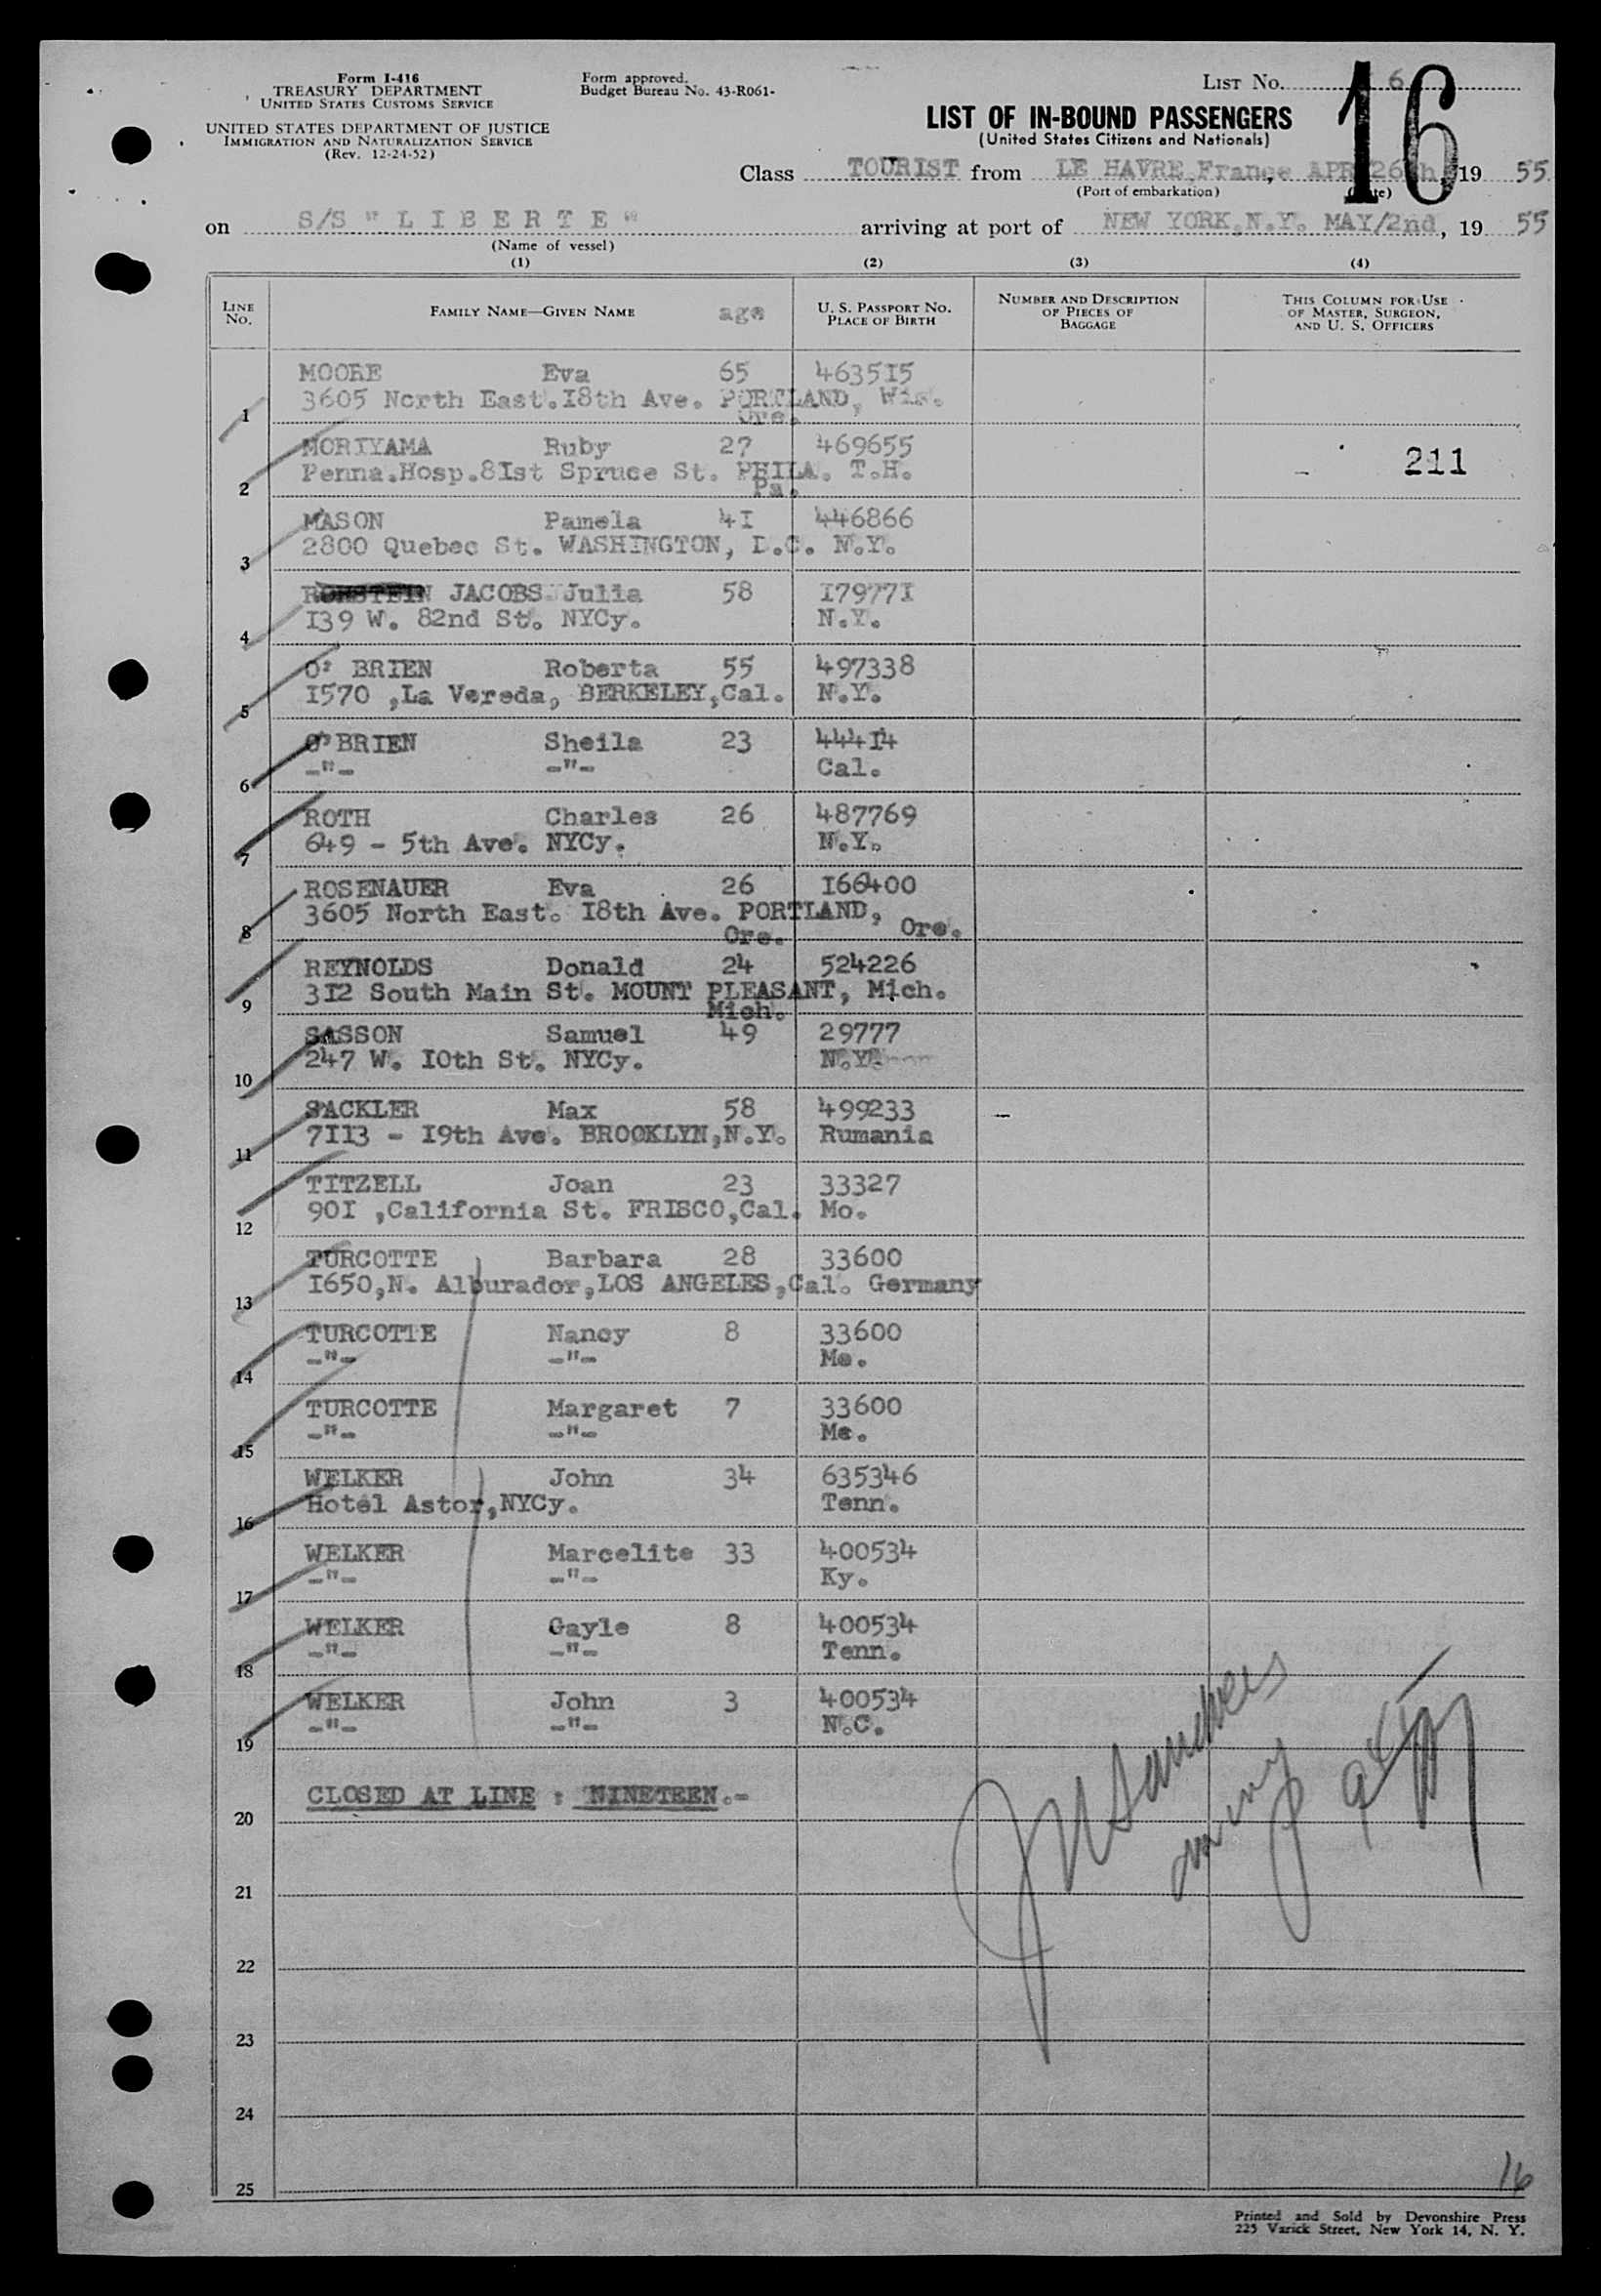 Form I-416
TREASURY DEPARTMENT
UNITED STATES CUSTOMS SERVICE
UNITED STATES DEPARTMENT OF JUSTICE
IMMIGRATION AND NATURALIZATION SERVICE
(Rev. 12-24-52)
Form approved.
Budget Bureau No. 43-R061-
LIST NO. 6
16
LIST OF IN-BOUND PASSENGERS
(United States Citizens and Nationals)
Class TOURIST from LE HAVRE,France, APR/26th, 19 55
(Port of embarkation) (Date)
on S/S "L I B E R T E" arriving at port of NEW YORK,N.Y. MAY/2nd, 19 55
(Name of vessel)
(1) (2) (3) (4)
LINE NO. FAMILY NAME—GIVEN NAME age U. S. PASSPORT NO. PLACE OF BIRTH NUMBER AND DESCRIPTION OF PIECES OF BAGGAGE THIS COLUMN FOR USE OF MASTER, SURGEON, AND U. S. OFFICERS
MOORE Eva 65 463515
1 3605 North East.I8th Ave. PORTLAND, Wis.
Ore.
MORIYAMA Ruby 27 469655
Penna.Hosp.8Ist Spruce St. PHILA. T.H. 211
2 Pa.
MASON Pamela 4I 446866
3 2800 Quebec St. WASHINGTON, D.C. N.Y.
JACOBS Julia 58 I7977I
4 I39 W. 82nd St. NYCy. N.Y.
O' BRIEN Roberta 55 497338
5 I570 ,La Vereda, BERKELEY,Cal. N.Y.
O'BRIEN Sheila 23 444I4
6 -"- -"- Cal.
ROTH Charles 26 487769
7 649 - 5th Ave. NYCy. N.Y.
ROSENAUER Eva 26 I66400
8 3605 North East. I8th Ave. PORTLAND, Ore.
Ore.
REYNOLDS Donald 24 524226
9 3I2 South Main St. MOUNT PLEASANT, Mich.
Mich.
SASSON Samuel 49 29777
10 247 W. IOth St. NYCy. N.Y.
SACKLER Max 58 499233
11 7II3 - I9th Ave. BROOKLYN,N.Y. Rumania
TITZELL Joan 23 33327
12 90I ,California St. FRISCO,Cal. Mo.
TURCOTTE Barbara 28 33600
13 I650,N. Alburador,LOS ANGELES,Cal. Germany
TURCOTTE Nancy 8 33600
14 -"- -"- Me.
TURCOTTE Margaret 7 33600
15 -"- -"- Me.
WELKER John 34 635346
16 Hotel Astor,NYCy. Tenn.
WELKER Marcelite 33 400534
17 -"- -"- Ky.
WELKER Gayle 8 400534
18 -"- -"- Tenn.
WELKER John 3 400534
19 -"- -"- N.C.
20 CLOSED AT LINE : NINETEEN.-
21
22
23
24
25
16
Printed and Sold by Devonshire Press
225 Varick Street, New York 14, N. Y.